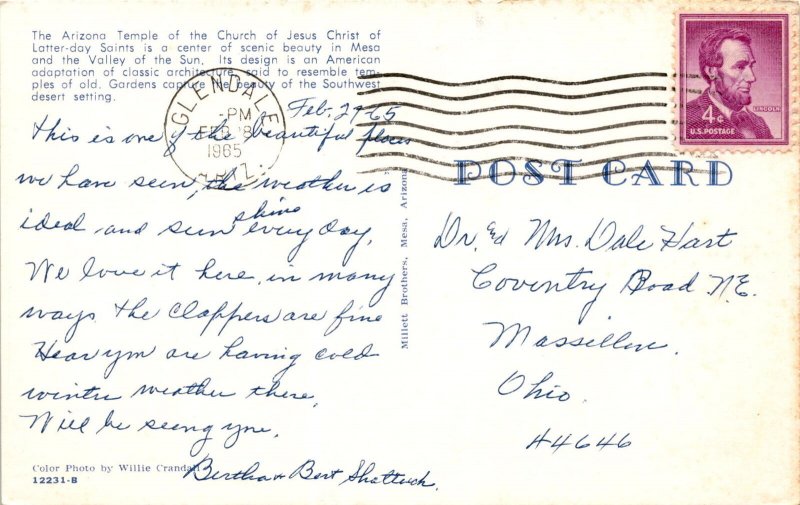 The Arizona Temple of the Church of Jesus Christ of
Latter-day Saints is a center of scenic beauty in Mesa
and the Valley of the Sun. Its design is an American
adaptation of classic architecture said to resemble tem-
ples of old. Gardens capture the beauty of the Southwest
desert setting.
GLENDALE
PM
FEB 8
1965
ARIZ.
4¢
LINCOLN
U.S. POSTAGE
Feb. 7-65
This is one of the beautiful places
we have seen, the weather is
ideal and sun shine every day,
We love it here in many
ways the Clappers are fine
Hear you are having cold
winter weather there,
Will be seeing you,
Bertha & Bert Shattuck.
Color Photo by Willie Crandall
12231-B
Millett Brothers, Mesa, Arizona
POST CARD
Dr. & Mrs. Dale Hart
Coventry Road N.E.
Massillon.
Ohio.
44646